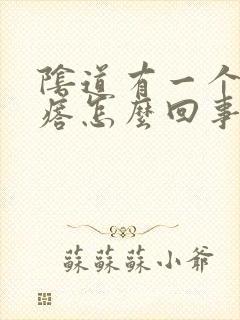 陰道有一个
痞怎麼回事
蘇蘇蘇小爺